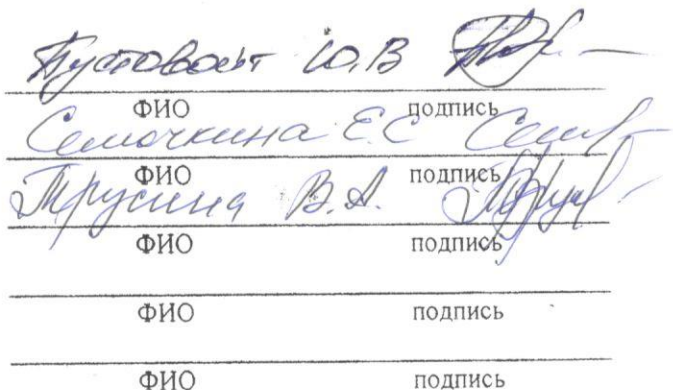 Пустовойт Ю.В
ФИО подпись
Семочкина Е.С
ФИО подпись
Трусина В.А.
ФИО подпись
ФИО подпись
ФИО подпись